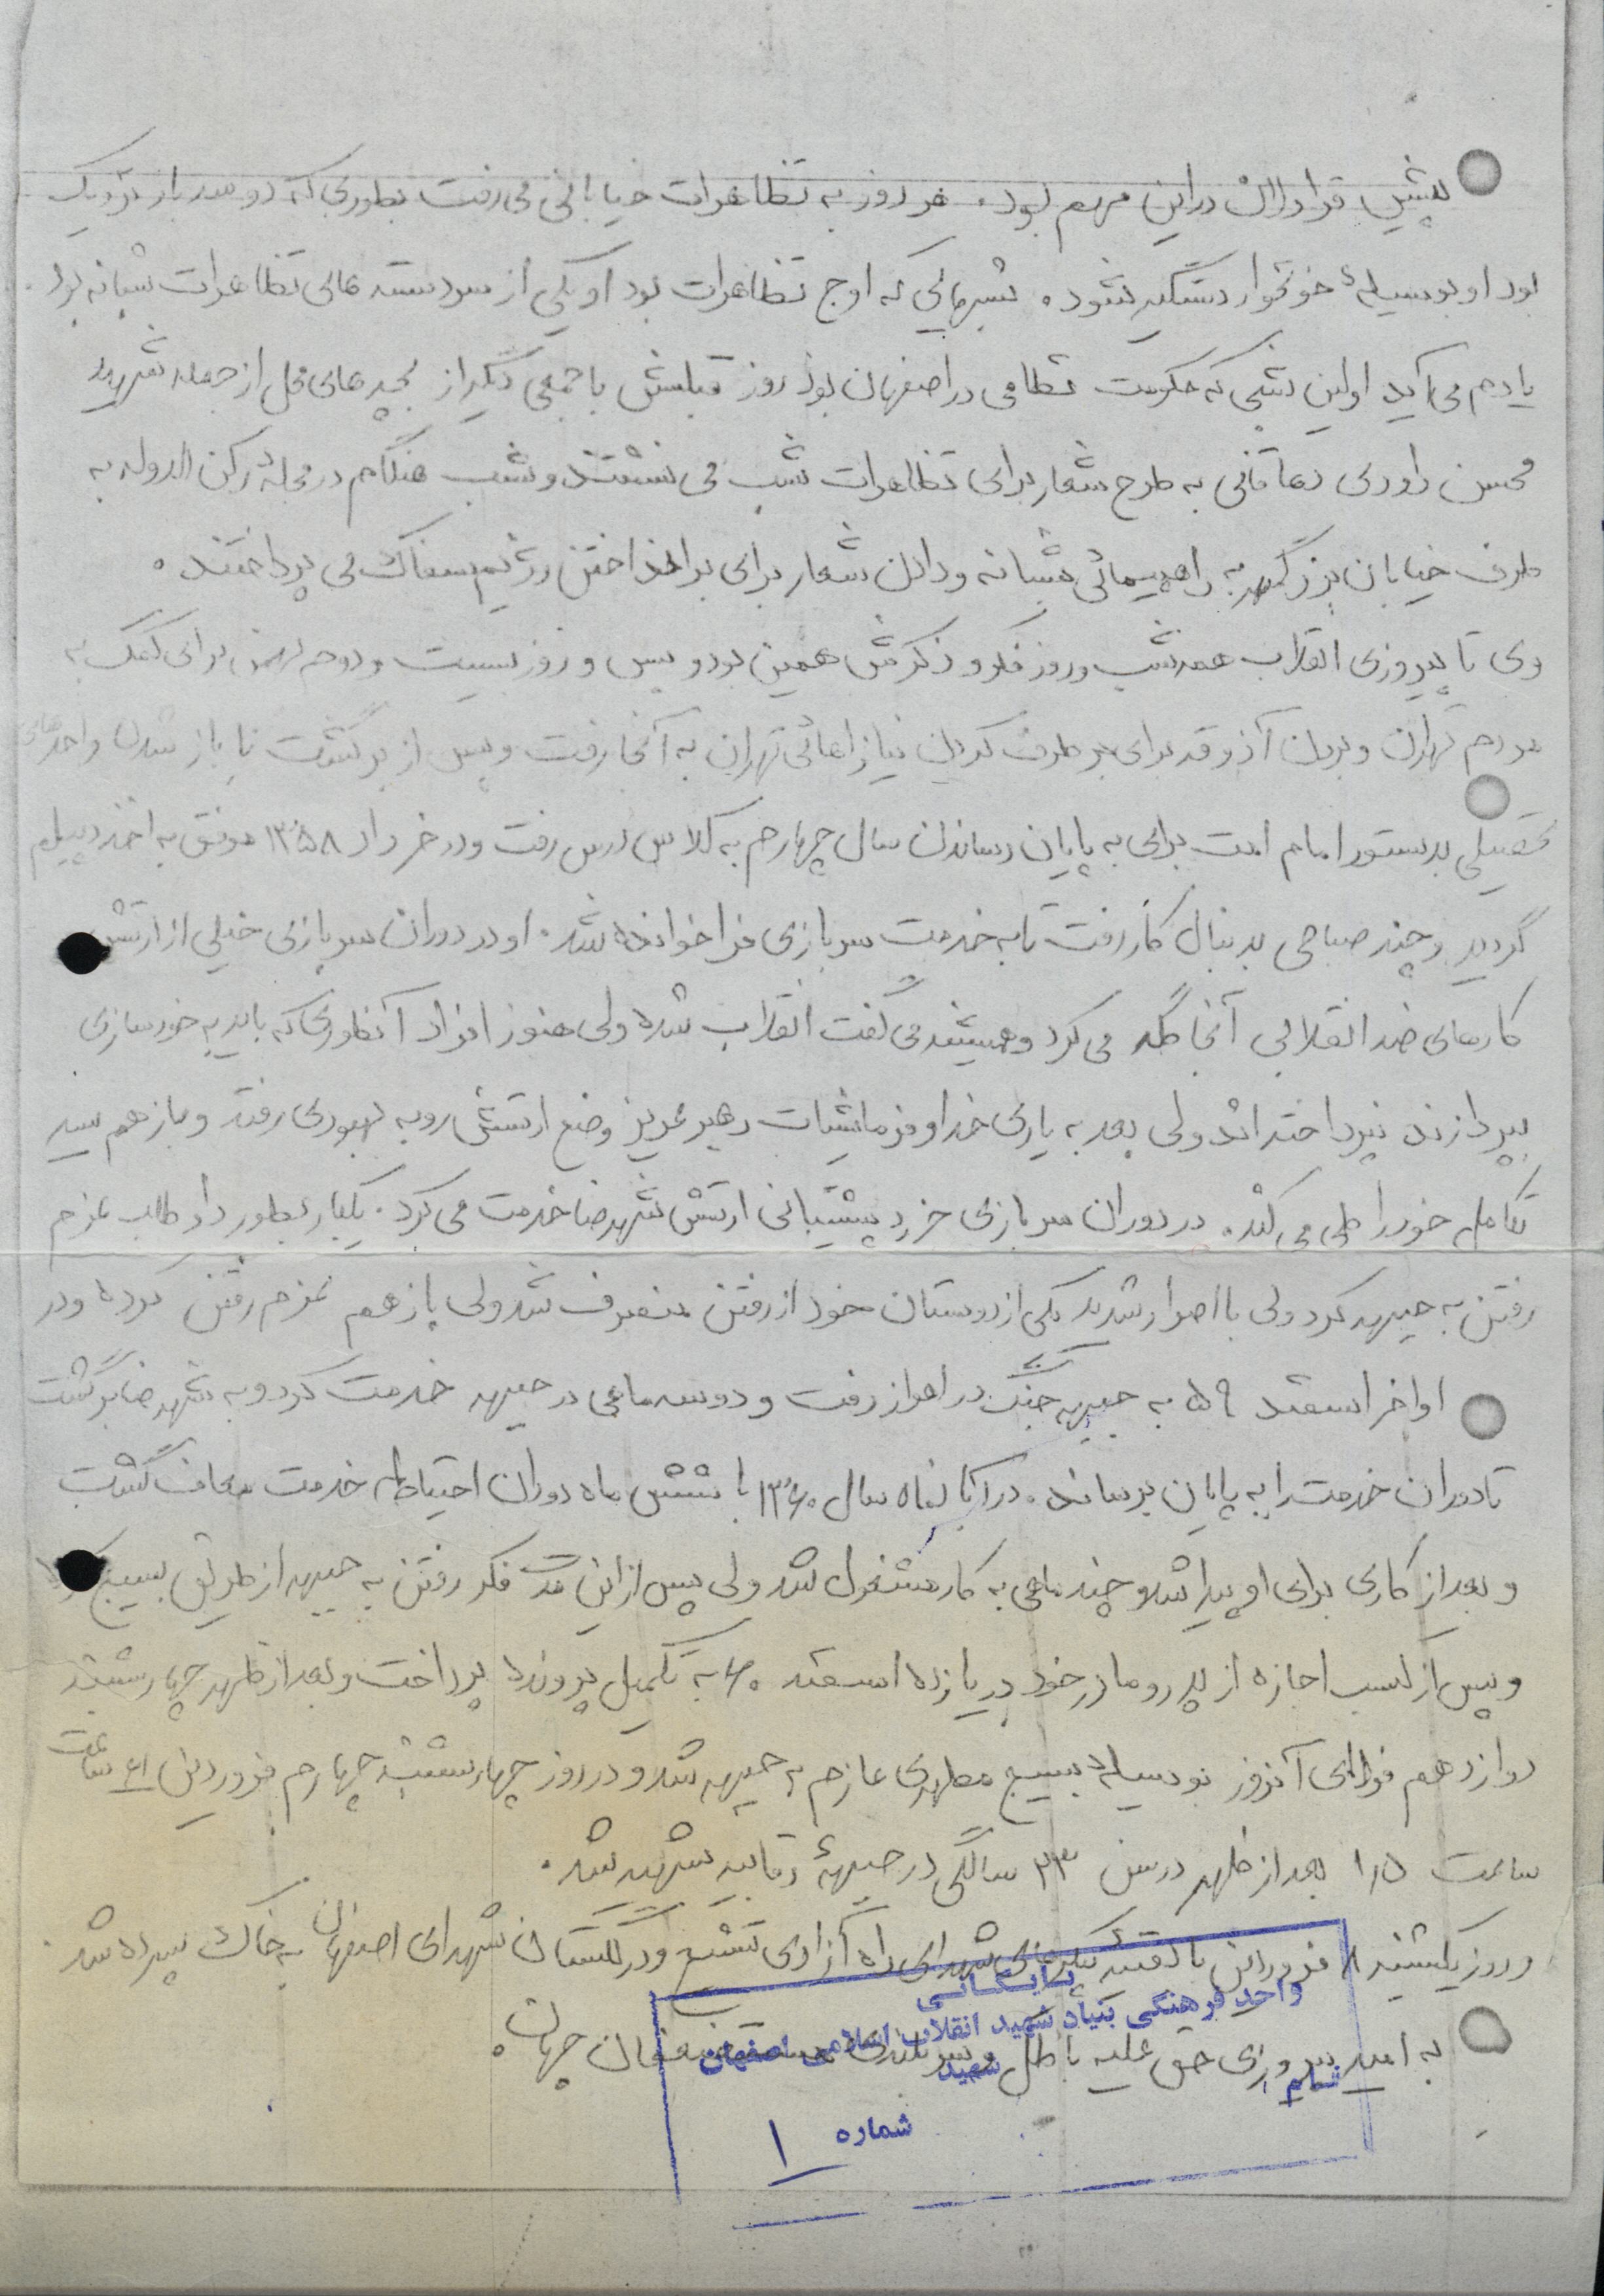 پیش قراولان در این مهم بود. هر روز به تظاهرات خیابانی می رفت بطوری که دو سه بار نزدیک
بود او بوسیلهٔ خونخوار دستگیر شود. شبهایی که اوج تظاهرات بود او یکی از سردسته های تظاهرات شبانه بود.
یادم می آید اولین شبی که حکومت نظامی در اصفهان بود روز قبلش با جمعی دیگر از بچه های محل از جمله شهید
محسن داوری دهاقانی به طرح شعار برای تظاهرات شب می نشستند و شب هنگام در محلهٔ رکن الدوله به
طرف خیابان بزرگمهر به راهپیمائی شبانه و دادن شعار برای برانداختن رژیم سفاک می پرداختند.
وی تا پیروزی انقلاب همه شب و روز فکر و ذکرش همین بود و پس و روز بیست و دوم بهمن برای کمک به
مردم تهران و بردن آذوقه برای برطرف کردن نیاز اهالی تهران به آنجا رفت و پس از برگشت با باز شدن واحدهای
تحصیلی بدستور امام امت برای به پایان رساندن سال چهارم به کلاس درس رفت و در خرداد ۱۳۵۸ موفق به اخذ دیپلم
گردید و چند صباحی بدنبال کار رفت تا به خدمت سربازی فراخوانده شد. او در دوران سربازی خیلی از ارتش
کارهای ضد انقلابی آنجا گله می کرد و همیشه می گفت انقلاب شده ولی هنوز افراد آنطوری که باید به خودسازی
بپردازند نپرداخته اند ولی بعد به یاری خدا و فرمایشات رهبر عزیز وضع ارتش رو به بهبودی رفته و باز هم سیر
تکاملی خود را طی می کند. در دوران سربازی جزء پشتیبانی ارتش شهرضا خدمت می کرد. یکبار بطور داوطلب عزم
رفتن به جبهه کرد ولی با اصرار شدید یکی از دوستان خود از رفتن منصرف شد ولی باز هم عزم رفتن کرده و در
اواخر اسفند ۵۹ به جبهه جنگ در اهواز رفت و دو سه ماهی در جبهه خدمت کرد و به شهرضا برگشت
تا دوران خدمت را به پایان برساند. در آبانماه سال ۱۳۶۰ با شش ماه دوران احتیاط از خدمت معاف گشت
و بعد از کاری برای او پیدا شد و چند ماهی به کار مشغول شد ولی پس از این مدت فکر رفتن به جبهه از طریق بسیج
و پس از کسب اجازه از پدر و مادر خود در یازده اسفند ۶۰ به تکمیل پرونده پرداخت و بعد از ظهر چهارشنبه
دوازدهم فردای آنروز بوسیلهٔ بسیج مطهری عازم جبهه شد و در روز چهارشنبه چهارم فروردین ۶۱ ساعت
ساعت ۱/۵ بعد از ظهر در سن ۲۳ سالگی در جبههٔ رقابیه شهید شد.
و روز یکشنبه ۸ فروردین با دفتن پیکرهای شهدای راه آزادی تشیع و در گلستان شهدای اصفهان به خاک سپرده شد.
به امید پیروزی حق علیه باطل و سربلندی مستضعفان جهان.
بایگانی
واحد فرهنگی بنیاد شهید انقلاب اسلامی اصفهان
نام شهید
شماره ۱